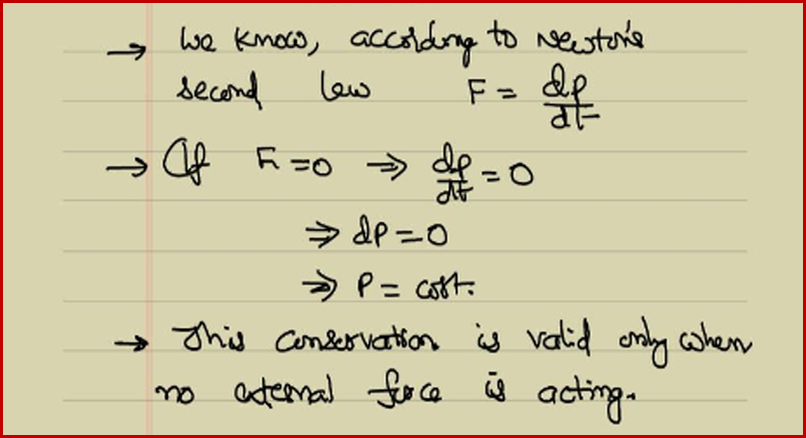 → We know, according to Newton's
second law F = dp/dt
→ If F = 0 ⇒ dp/dt = 0
⇒ dp = 0
⇒ P = cost.
→ This conservation is valid only when
no external force is acting.